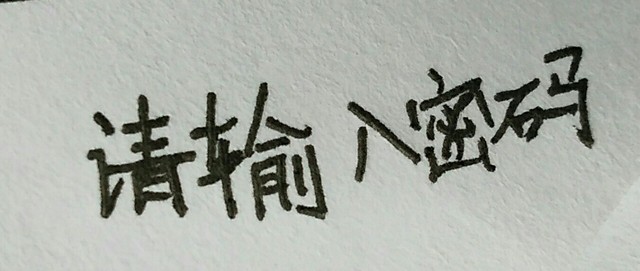 请输入密码